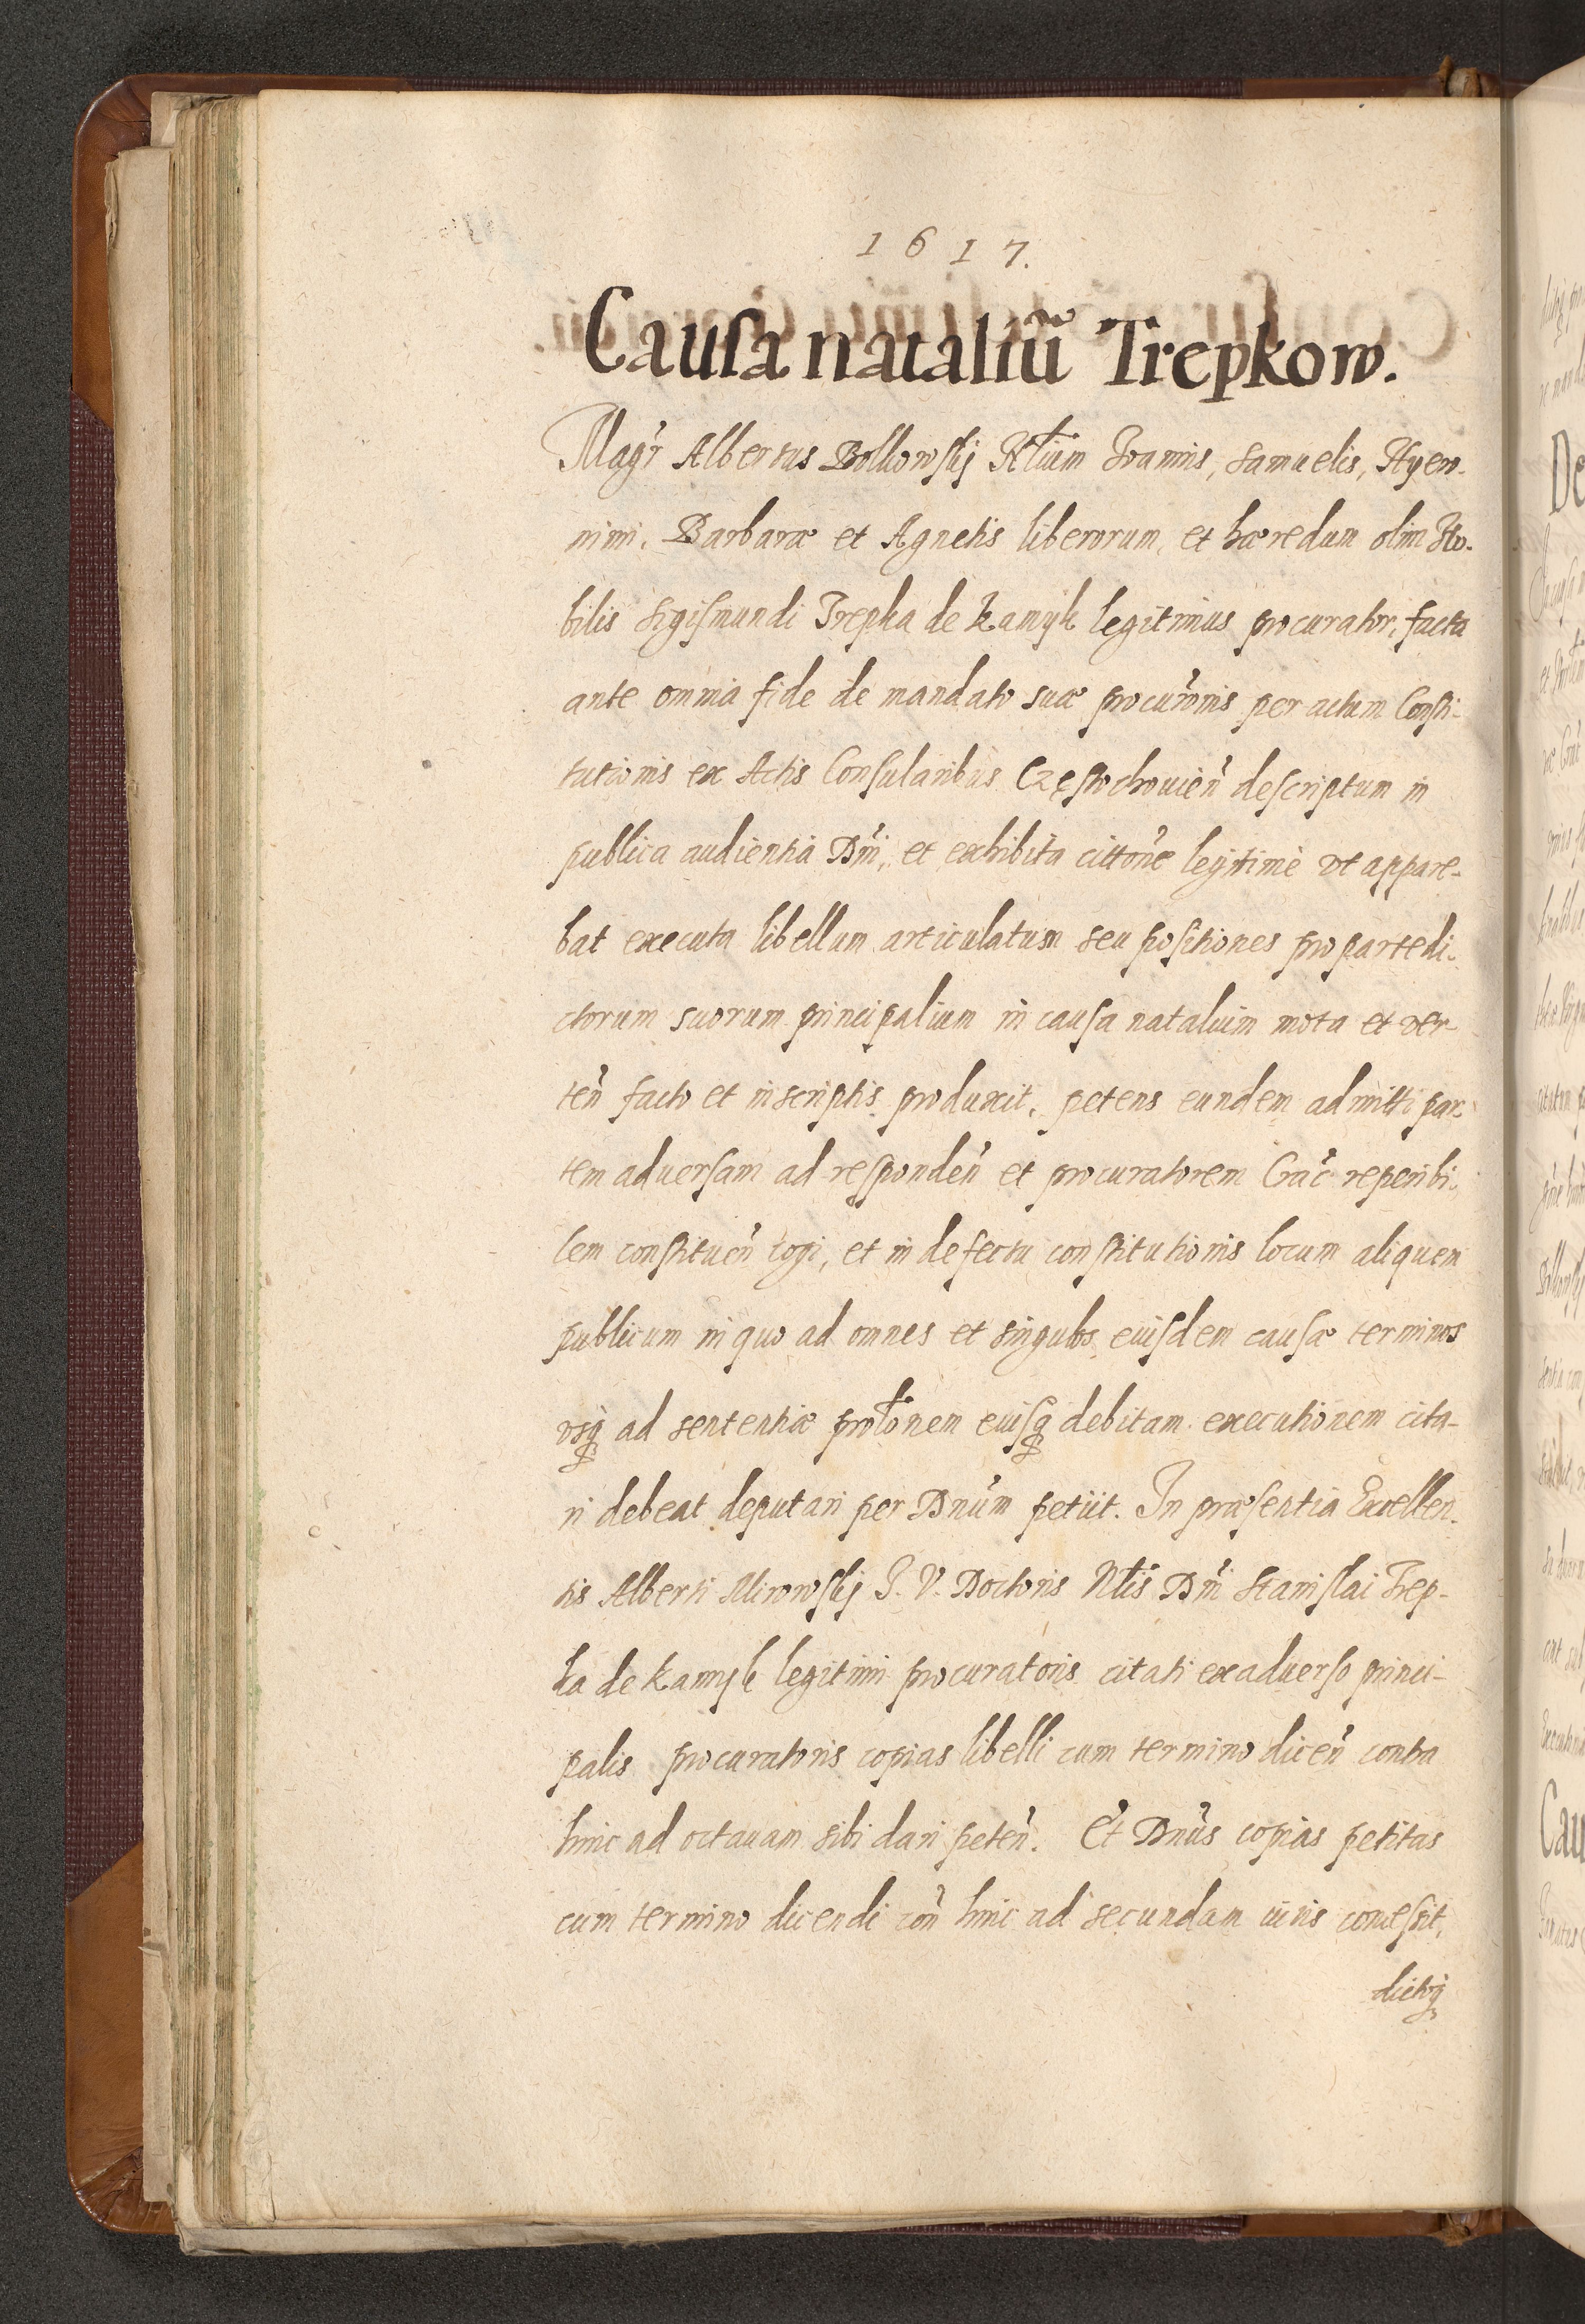 1617.
Causa nataliũ Trepkow.
Magr Albertus Bolkowskj Nłium Ioannis, Samuelis, Hyero-
nimi, Barbaræ et Agnetis liberorum, et hæredum olim No-
bilis Sigismundi Trepka de Kamyk legitimus procurator, facta
ante omnia fide de mandato suæ procurõnis per actum Consti-
tutionis ex Actis Consularibus Częstochouien̄ descriptum in
publica audientia Dni, et exhibita cittõne legitimè vt appare-
bat executa libellum articulatum seu positiones pro parte di-
ctorum suorum principalium in causa natalium mota et ver-
ten̄ facto et in scriptis produxit, petens eundem admitti par-
tem aduersam ad responden̄ et procuratorem Crac̄ reperibi-
lem constituen̄ cogi, et in defectu constitutionis locum aliquem
publicum in quo ad omnes et singulos eiusdem causæ terminos
vsq ad sententiæ prołonem eiusq debitam executionem cita-
ri debeat deputari per Dnum petiit. In præsentia Excellen-
tis Alberti Mirowskj I. V. Doctoris Nłis Dni Stanislai Trep-
ka de Kamyk legitimi procuratoris citati ex aduerso princi-
palis procuratoris copias libelli cum termino dicen̄ contra
hinc ad octauam sibi dari peten̄. Et Dnus copias petitas
cum termino dicendi con̄ hinc ad secundam iuris concessit,
dictoq
De
Cau